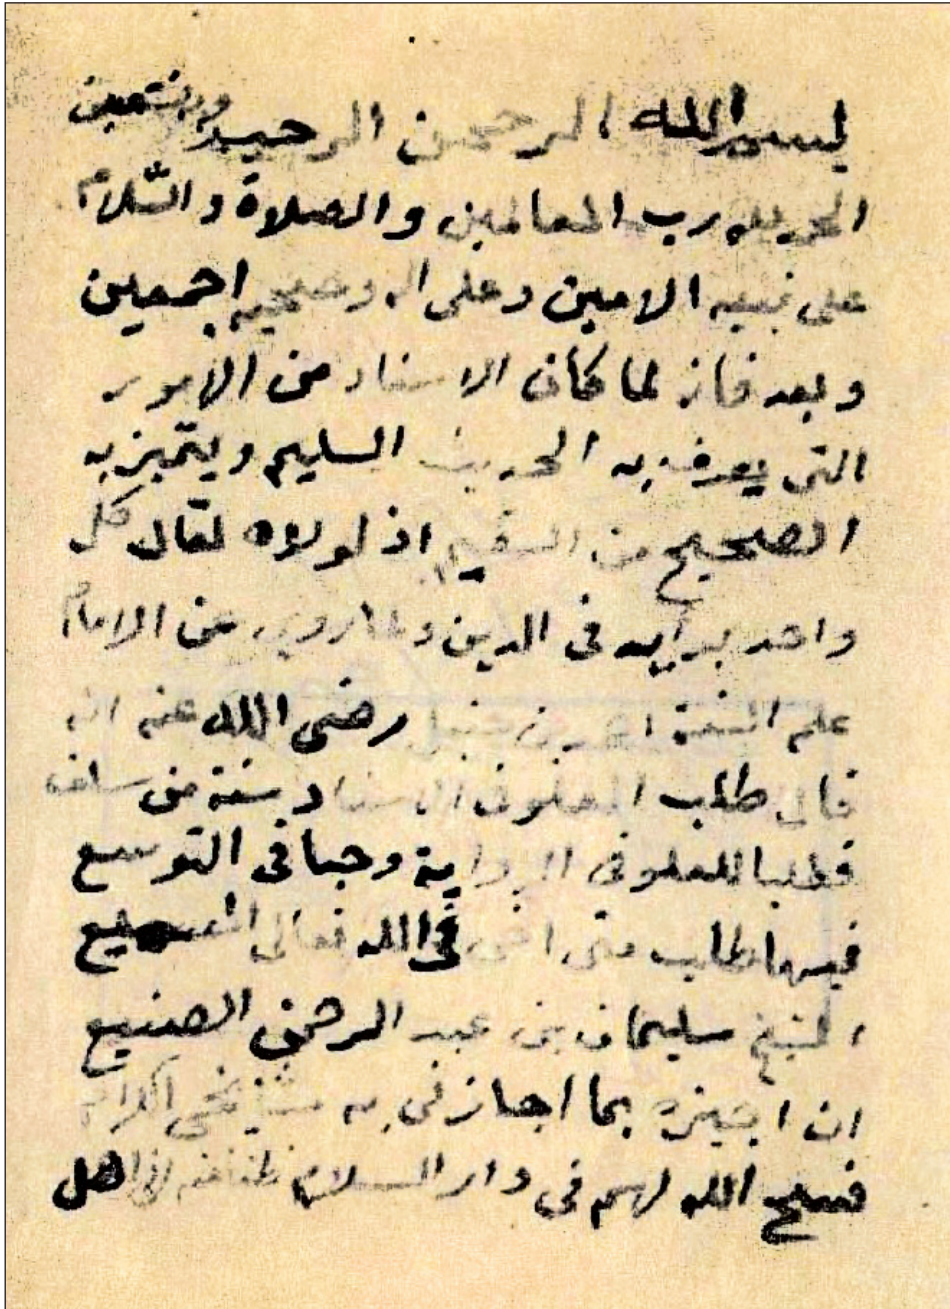 بسم الله الرحمن الرحيم وبه نستعين
الحمد لله رب العالمين والصلاة والسلام
على نبيه الامين وعلى اله وصحبه اجمعين
وبعد فانه لما كان الاسناد من الامور
التى يعرف به الحديث السليم ويتميز به
الصحيح من السقيم اذ لولاه لقال كل
واحد برأيه فى الدين ولما روي عن الامام
علم السنة احمد بن حنبل رضى الله عنه انه
قال طلب العلو فى الاسناد سنة من سلف
فطلبا للعلو فى الرواية وحبا فى التوسع
فيها طلب منى اخى فى الله تعالى
الشيخ سليمان بن عبد الرحمن الصنيع
ان اجيزه بما اجازنى به مشايخى الكرام
فسح الله لهم فى دار السلام ظنا منه انى اهل